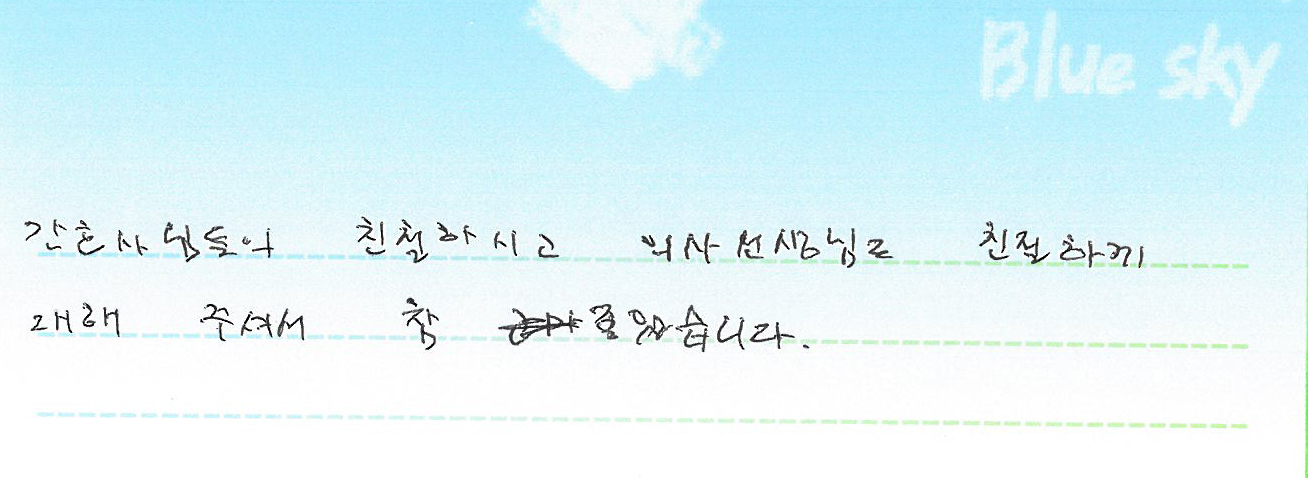 Blue sky
간호사님들이 친절하시고 의사선생님도 친절하게
대해 주셔서 참 좋았습니다.